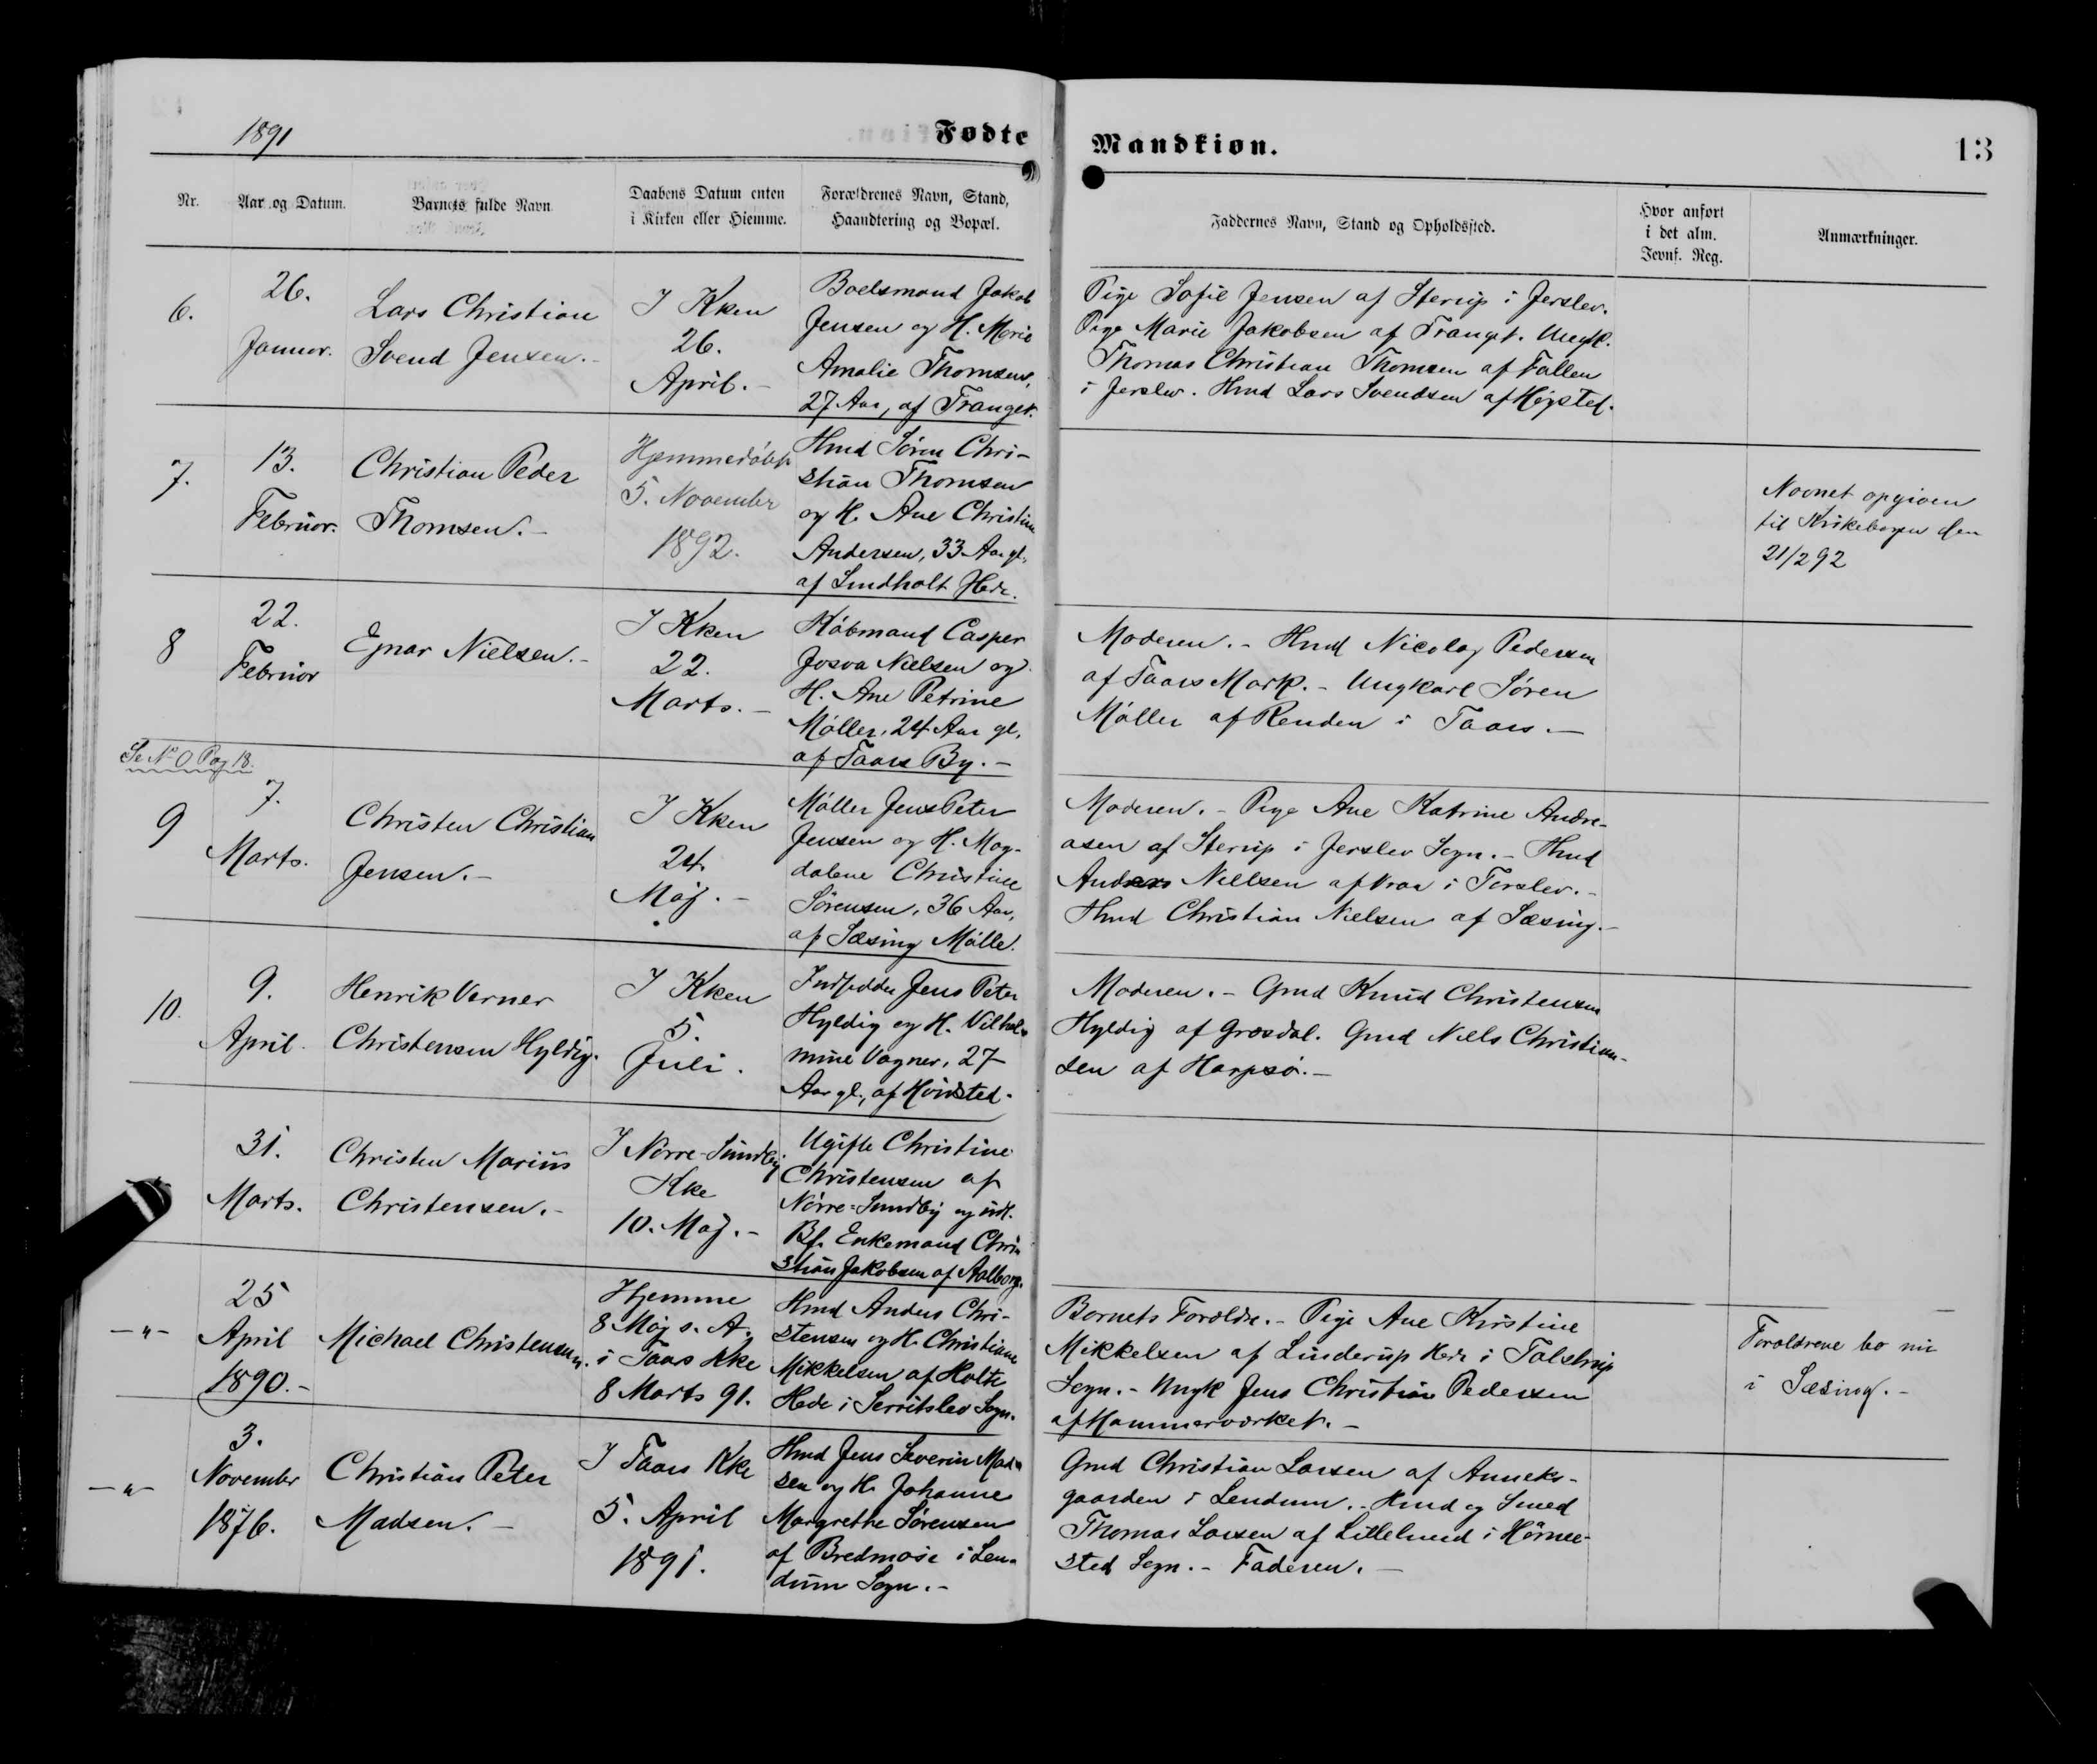 1891
Fødte
Mandkiøn.
13
Nr.
Aar og Datum.
Barnets fulde Navn
Daabens Datum enten
i Kirken eller Hiemme.
Forældrenes Navn, Stand,
Haandtering og Bopæl.
Faddernes Navn, Stand og Opholdssted.
Hvor anført
i det alm.
Jevnf. Reg.
Anmærkninger.
6.
26.
Januar.
Lars Christian
Svend Jensen.-
I Kken
26.
April.-
Boelsmand Jakob
Jensen og H. Marie
Amalie Thomsen,
27 Aar, af Tranget.
Pige Sofie Jensen af Sterup i Jerslev.
Pige Marie Jakobsen af Tranget. Ungk.
Thomas Christian Thomsen af Fallen
i Jerslev. Hmd Lars Svendsen af Høgsted.
7.
13.
Februar.
Christian Peder
Thomsen.-
Hjemmedøbt
5. November
1892.
Hmd Søren Chri-
stian Thomsen
og H. Ane Christine
Andersen, 33 Aar gl.,
af Lindholt Hede.
Navnet opgiven
til Kirkebogen den
21/2 92
8
22.
Februar
Ejnar Nielsen.-
I Kken
22.
Marts.-
Købmand Casper
Josva Nielsen og
H. Ane Petrine
Møller, 24 Aar gl.
af Taars By.-
Moderen.- Hmd Nicolaj Pedersen
af Taars Mark.- Ungkarl Søren
Møller af Renden i Taars.-
Se No 0 Pag 18.
9
7.
Marts.
Christen Christian
Jensen.-
I Kken
24.
Maj.-
Møller Jens Peter
Jensen og H. Mag-
dalene Christine
Sørensen, 36 Aar,
af Sæsing Mølle.
Moderen.- Pige Ane Katrine Andre-
asen af Sterup i Jerslev Sogn.- Hmd
Anders Nielsen af Vraa i Torslev.-
Hmd Christian Nielsen af Sæsing.-
10.
9.
April.
Henrik Verner
Christensen Hyldig.
I Kken
5.
Juli.
Indsidder Jens Peter
Hyldig og H. Vilhel-
mine Vagner, 27
Aar gl., af Hvidsted.
Moderen.- Gmd Knud Christensen
Hyldig af Grøsdal. Gmd Niels Christian-
sen af Harpsø.-
31.
Marts.
Christen Marius
Christensen.-
I Nørre-Sundby
Kke
10. Maj.-
Ugifte Christine
Christensen af
Nørre-Sundby og udl.
Bf. Enkemand Chri-
stian Jakobsen af Aalborg.
-"-
25
April
1890.-
Michael Christensen.
Hjemme
8 Maj s. A.
i Taars Kke
8 Marts 91.
Hmd Anders Chri-
stensen og H. Christiane
Mikkelsen af Holte
Hede i Serritslev Sogn.
Barnets Forældre.- Pige Ane Kirstine
Mikkelsen af Linderup Hede i Tolstrup
Sogn.- Ungk Jens Christian Pedersen
af Hammerværket.-
Forældrene bo nu
i Sæsing.-
-"-
3.
November
1876.
Christian Peter
Madsen.-
I Taars Kke
5. April
1891.
Hmd Jens Severin Mad-
sen og H. Johanne
Margrethe Sørensen
af Bredmose i Len-
dum Sogn.-
Gmd Christian Larsen af Anneks-
gaarden i Lendum.- Hmd og Smed
Thomas Larsen af Lillelund i Hørme-
sted Sogn.- Faderen.-